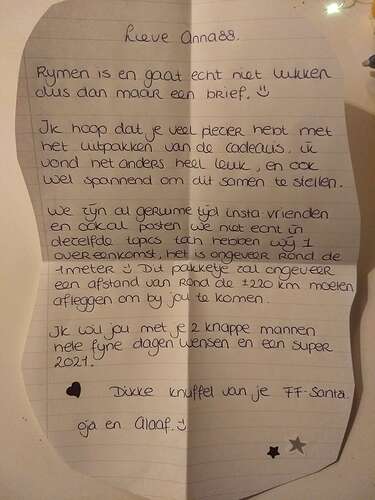 Lieve Anna88.
Rymen is en gaat echt niet lukken
dus dan maar een brief. :)
Ik hoop dat je veel plezier hebt met
het uitpakken van de cadeaus. Ik
vond het anders heel leuk, en ook
wel spannend om dit samen te stellen.
We zijn al geruime tijd insta-vrienden
en ookal posten we niet echt in
dezelfde topics toch hebben wij 1
overeenkomst, het is ongeveer rond de
1meter :) Dit pakketje zal ongeveer
een afstand van rond de ±220 km moeten
afleggen om by jou te komen.
Ik wil jou met je 2 knappe mannen
hele fyne dagen wensen en een super
2021.
Dikke knuffel van je FF-Santa.
oja en Alaaf. :)